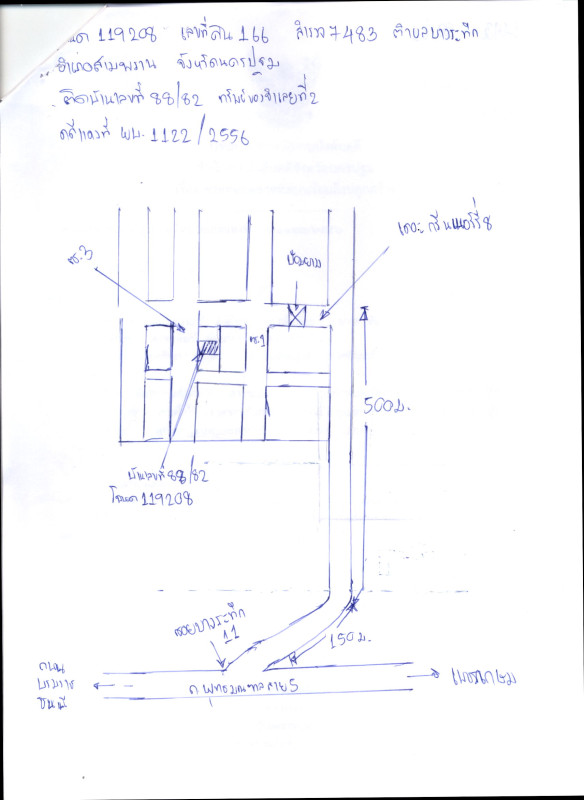 โฉนด 119208 เลขที่ดิน 166 สำรวจ 7483 ตำบลบางระทึก
อำเภอสามพราน จังหวัดนครปฐม
ติดบ้านเลขที่ 88/82 ทรัพย์ของจำเลยที่2
คดีแดงที่ ผบ. 1122/2556
เดอะกรีนเนอร์รี่8
ซ.3
ป้อมยาม
ซ.1
500ม.
บ้านเลขที่ 88/82
โฉนด 119208
ซอยบางระทึก
11
150ม.
ถนน
บรมราช
ชนนี
ถ.พุทธมณฑลสาย5
เพชรเกษม